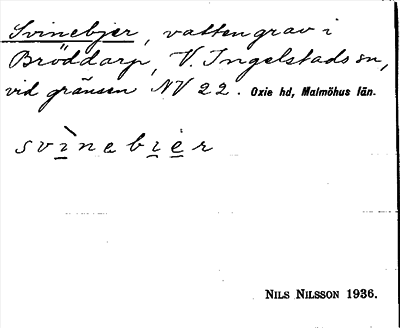 Svinebjer, vattengrav i
Bröddarp, V. Ingelstads sn,
vid gränsen NV 22. Oxie hd, Malmöhus län.
svìnebier
NILS NILSSON 1936.